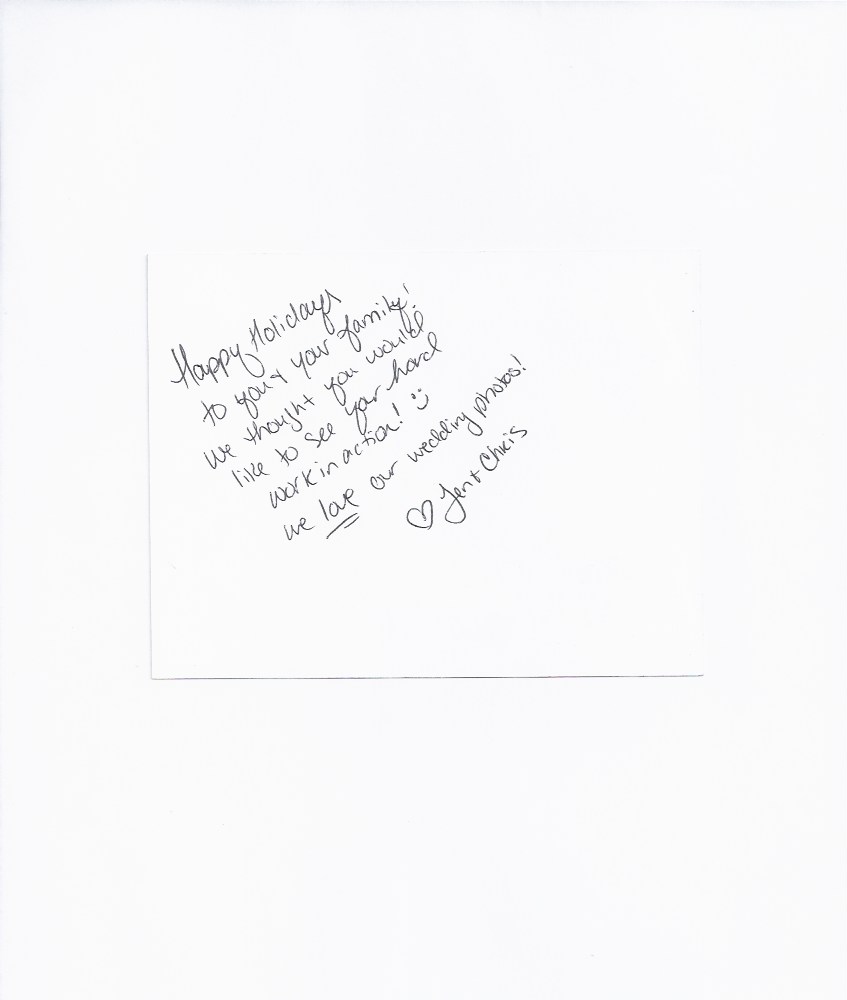 Happy Holidays
to you + your family!
We thought you would
like to see your hard
work in action! :)
we love our wedding photos!
♡ Jen + Chris